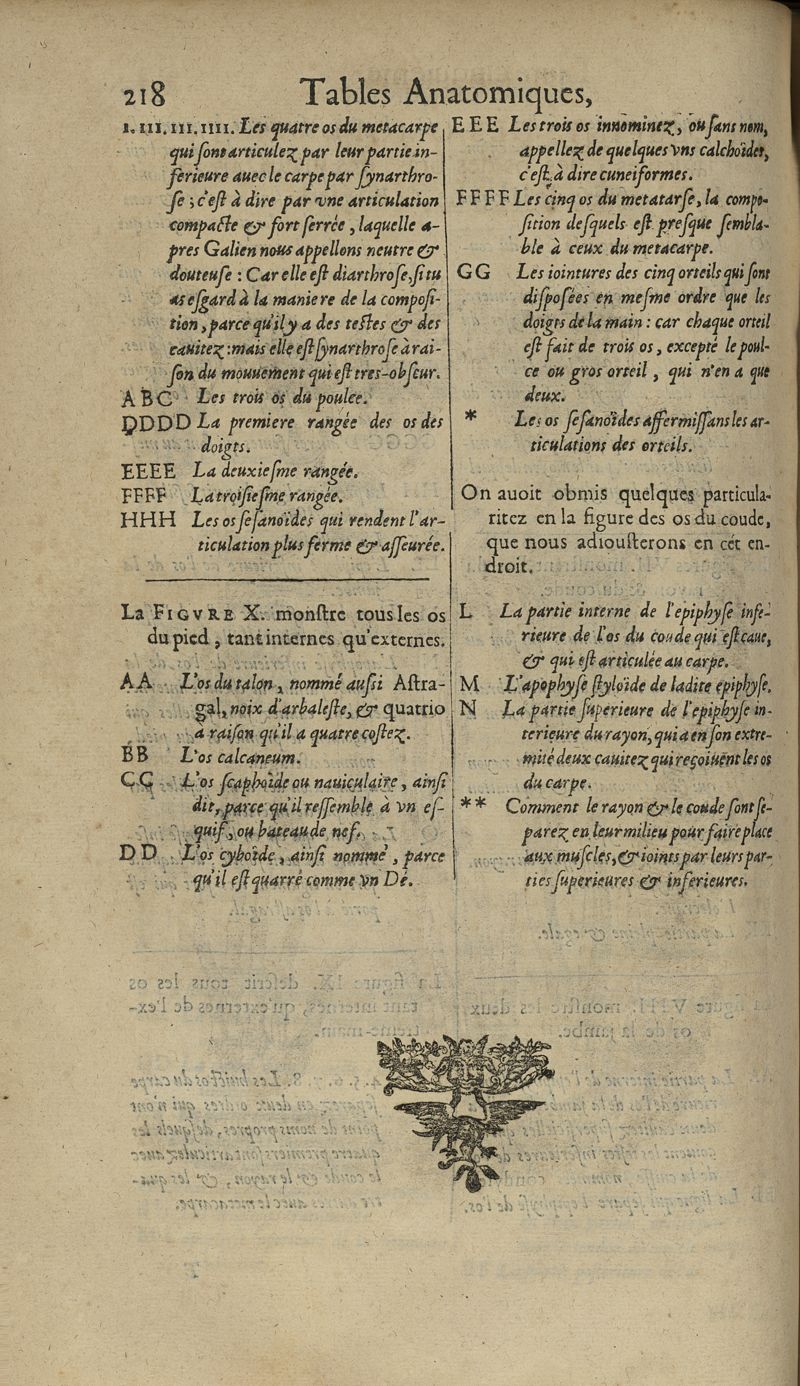 218
Tables Anatomiques,
I. III. III. IIII. Les quatre os du metacarpe
qui ſont articulez par leur partie in-
ferieure auec le carpe par ſynarthro-
ſe ; c'eſt à dire par vne articulation
compacte & fort ſerrée , laquelle a-
pres Galien nous appellons neutre &
douteuſe : Car elle eſt diarthroſe, ſi tu
as eſgard à la maniere de la compoſi-
tion , parce qu'il y a des teſtes & des
cauitez : mais elle eſt ſynarthroſe à rai-
ſon du mouuement qui eſt tres-obſcur.
A B C Les trois os du poulce.
DDDD La premiere rangée des os des
doigts.
EEEE La deuxieſme rangée.
FFFF La troiſieſme rangée.
HHH Les os ſeſanoïdes qui rendent l'ar-
ticulation plus ferme & aſſeurée.
La FIGVRE X. monſtre tous les os
du pied , tant internes qu'externes.
A A L'os du talon , nommé auſsi Aſtra-
gal, noix d'arbaleſte, & quatrio
a raiſon qu'il a quatre coſtez.
B B L'os calcaneum.
C C L'os ſcaphoïde ou nauiculaire , ainſi
dit, parce qu'il reſſemble à vn eſ-
quif , ou bateau de nef.
D D L'os cyboïde , ainſi nommé , parce
qu'il eſt quarré comme vn Dé.
E E E Les trois os innominez , ou ſans nom,
appellez de quelques vns calchoïdes,
c'eſt à dire cuneiformes.
F F F F Les cinq os du metatarſe , la compo-
ſition deſquels eſt preſque ſembla-
ble à ceux du metacarpe.
G G Les iointures des cinq orteils qui ſont
diſpoſées en meſme ordre que les
doigts de la main : car chaque orteil
eſt fait de trois os , excepté le poul-
ce ou gros orteil , qui n'en a que
deux.
* Les os ſeſanoïdes affermiſſans les ar-
ticulations des orteils.
On auoit obmis quelques particula-
ritez en la figure des os du coude,
que nous adiouſterons en cét en-
droit.
L La partie interne de l'epiphyſe infe-
rieure de l'os du coude qui eſt caue,
& qui eſt articulée au carpe.
M L'apophyſe ſtyloïde de ladite epiphyſe.
N La partie ſuperieure de l'epiphyſe in-
terieure du rayon, qui a en ſon extre-
mité deux cauitez qui reçoiuent les os
du carpe.
* * Comment le rayon & le coude ſont ſe-
parez en leur milieu pour faire place
aux muſcles, & ioints par leurs par-
ties ſuperieures & inferieures.